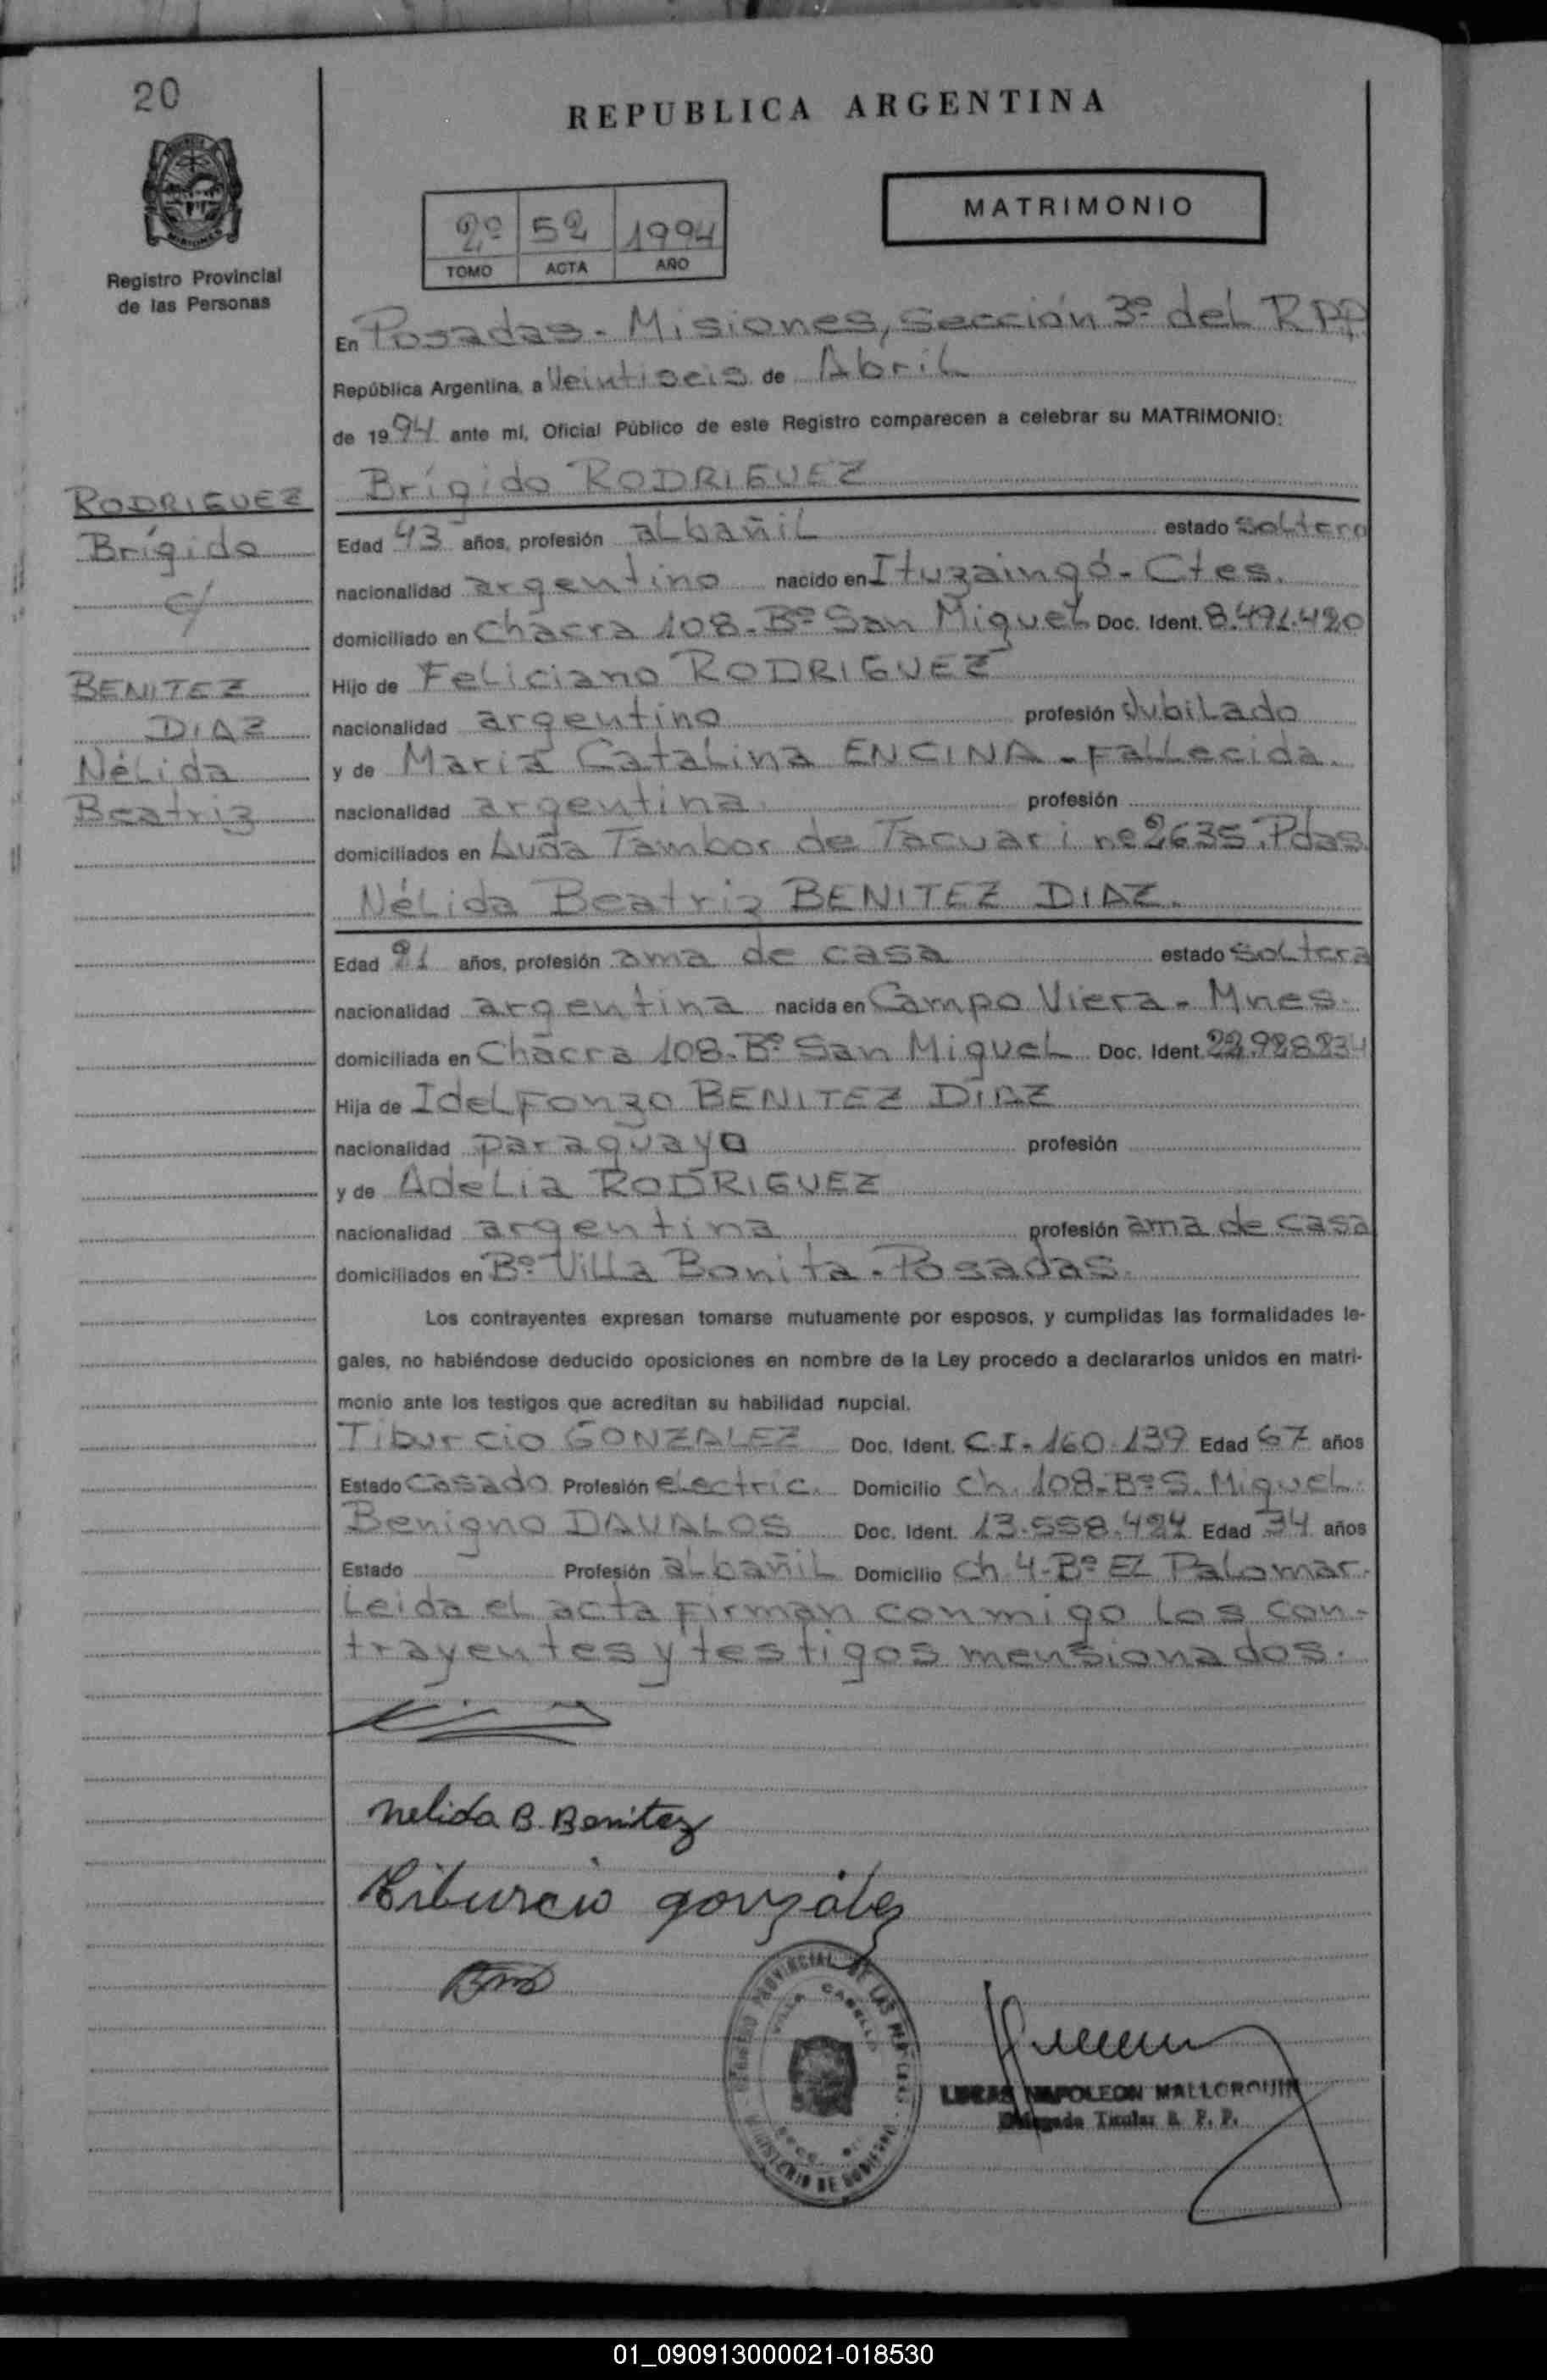 20
REPUBLICA ARGENTINA
MATRIMONIO
2º 52 1994
TOMO ACTA AÑO
Registro Provincial
de las Personas
En Posadas - Misiones, Sección 3º del R.P.P.
República Argentina, a Veintiseis de Abril
de 1994 ante mi, Oficial Público de este Registro comparecen a celebrar su MATRIMONIO:
RODRIGUEZ
Brígido
c/
BENITEZ
DIAZ
Nélida
Beatriz
Brígido RODRIGUEZ
Edad 43 años, profesión albañil estado soltero
nacionalidad argentino nacido en Ituzaingó - Ctes.
domiciliado en Chacra 108 - Bº San Miguel Doc. Ident. 8.491.420
Hijo de Feliciano RODRIGUEZ
nacionalidad argentino profesión Jubilado
y de María Catalina ENCINA - Fallecida.
nacionalidad argentina profesión
domiciliados en Avda Tambor de Tacuari nº 2635. Pdas.
Nélida Beatriz BENITEZ DIAZ.
Edad 21 años, profesión ama de casa estado soltera
nacionalidad argentina nacida en Campo Viera - Mnes.
domiciliada en Chacra 108 - Bº San Miguel Doc. Ident. 22.928.234
Hija de Idelfonzo BENITEZ DÍAZ
nacionalidad paraguayo profesión
y de Adelia RODRIGUEZ
nacionalidad argentina profesión ama de casa
domiciliados en Bº Villa Bonita - Posadas.
Los contrayentes expresan tomarse mutuamente por esposos, y cumplidas las formalidades le-
gales, no habiéndose deducido oposiciones en nombre de la Ley procedo a declararlos unidos en matri-
monio ante los testigos que acreditan su habilidad nupcial.
Tiburcio GONZALEZ Doc. Ident. C.I. 160.139 Edad 67 años
Estado casado Profesión electric. Domicilio Ch. 108 - Bº S. Miguel.
Benigno DAVALOS Doc. Ident. 13.558.494 Edad 34 años
Estado Profesión albañil Domicilio Ch 4 - Bº El Palomar.
Leida el acta firman conmigo los con-
trayentes y testigos mensionados.
Nelida B. Benitez
Tiburcio gonzález
REGISTRO PROVINCIAL DE LAS PERSONAS
VILLA CABELLO
MINISTERIO DE GOBIERNO
LUCAS NAPOLEON MALLORQUIN
Delegado Titular R. P. P.
01_090913000021-018530